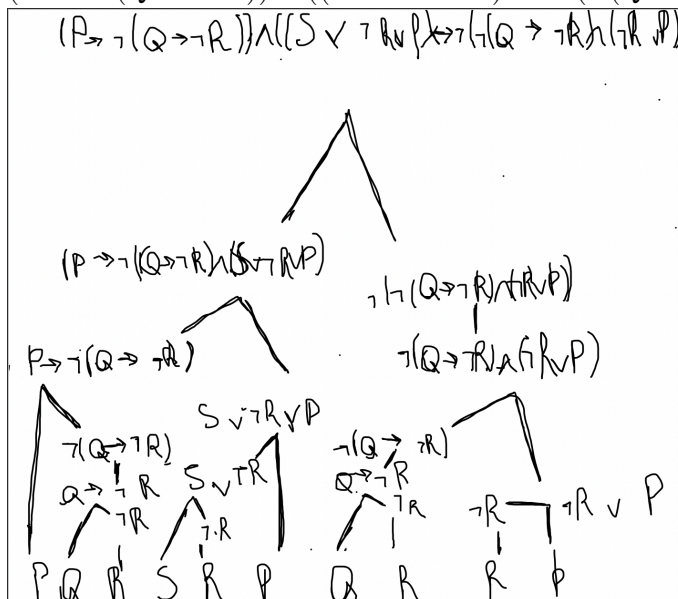 (P→¬(Q→¬R))∧((S∨¬R∨P)↔¬(¬(Q→¬R)∧(¬R∨P)
(P→¬(Q→¬R)∧(S∨¬R∨P)
¬(¬(Q→¬R)∧(¬R∨P))
P→¬(Q→¬R)
¬(Q→¬R)∧(¬R∨P)
S∨¬R∨P
¬(Q→¬R) ¬(Q→¬R)
Q→¬R S∨¬R Q→¬R
¬R ¬R ¬R ¬R ¬R∨P
P Q R S R P Q R R P